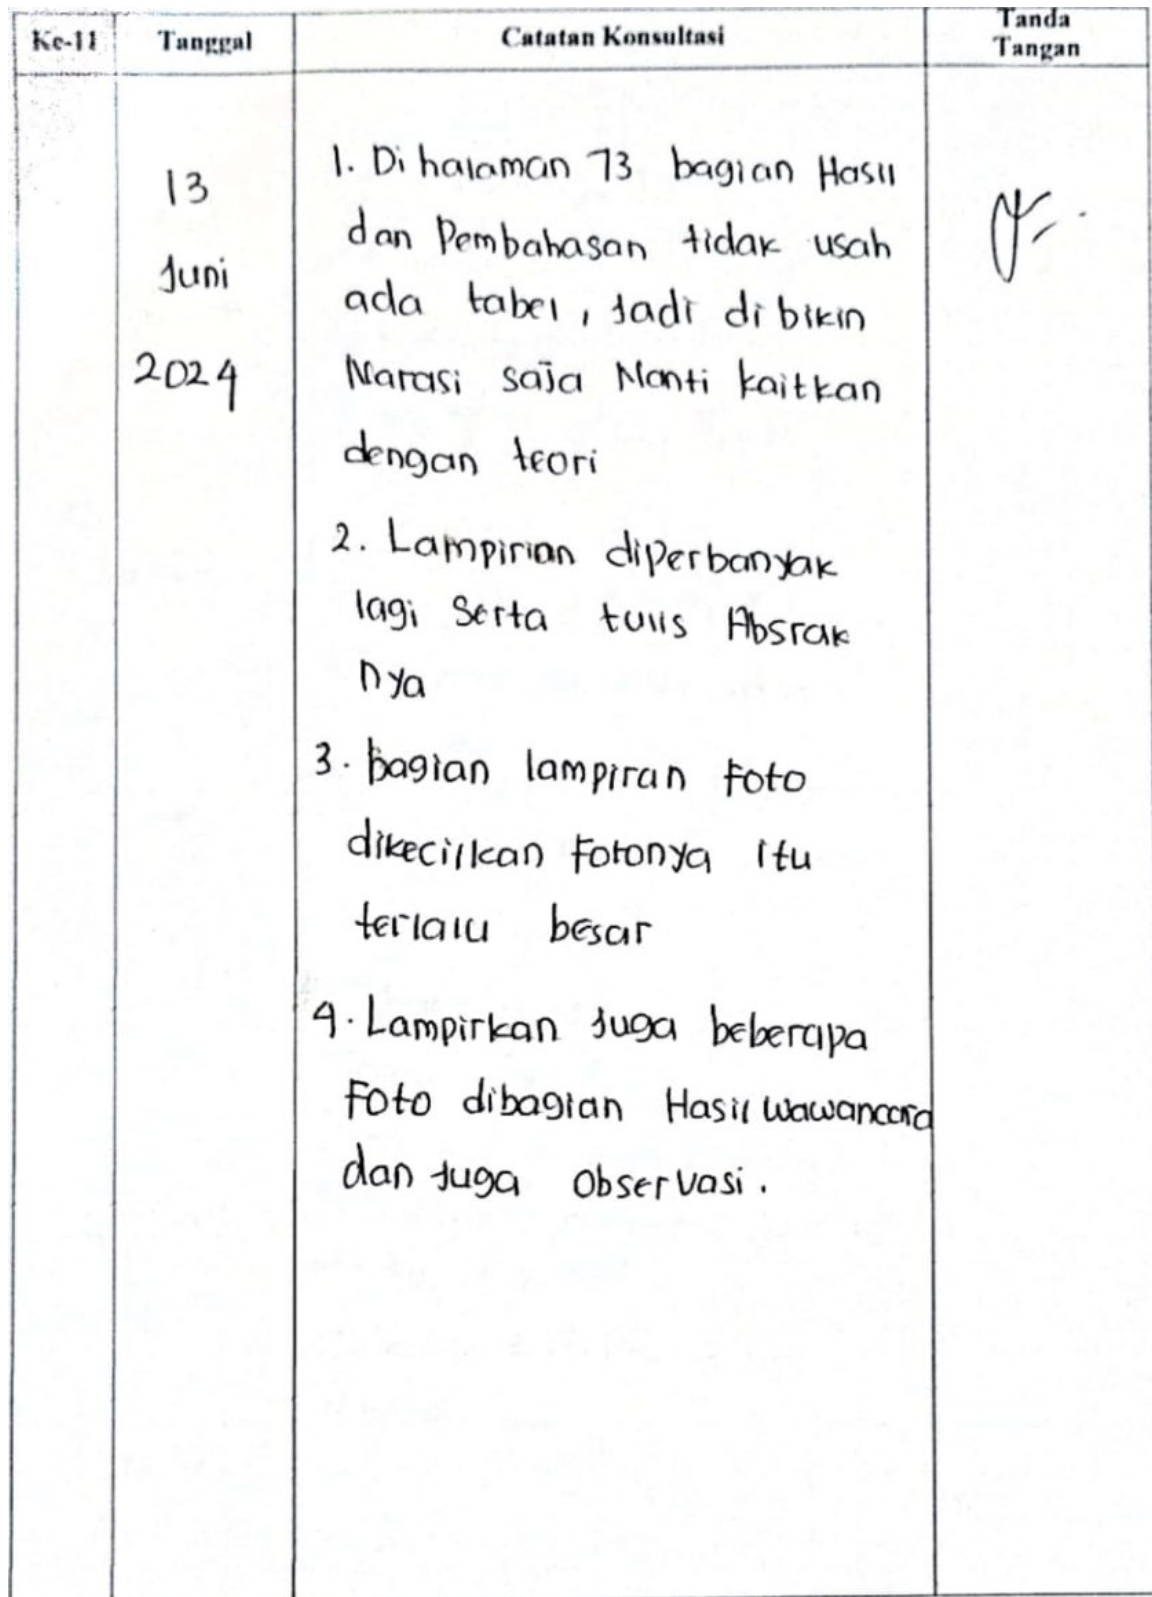 Ke-11 Tanggal Catatan Konsultasi Tanda Tangan
13 Juni 2024
1. Di halaman 73 bagian Hasil
dan Pembahasan tidak usah
ada tabel, Jadi di bikin
Narasi saja Nanti kaitkan
dengan teori
2. Lampirian diperbanyak
lagi Serta tulis Absrak
nya
3. bagian lampiran Foto
dikecilkan Fotonya itu
terlalu besar
4. Lampirkan Juga beberapa
Foto dibagian Hasil wawancara
dan Juga Observasi.